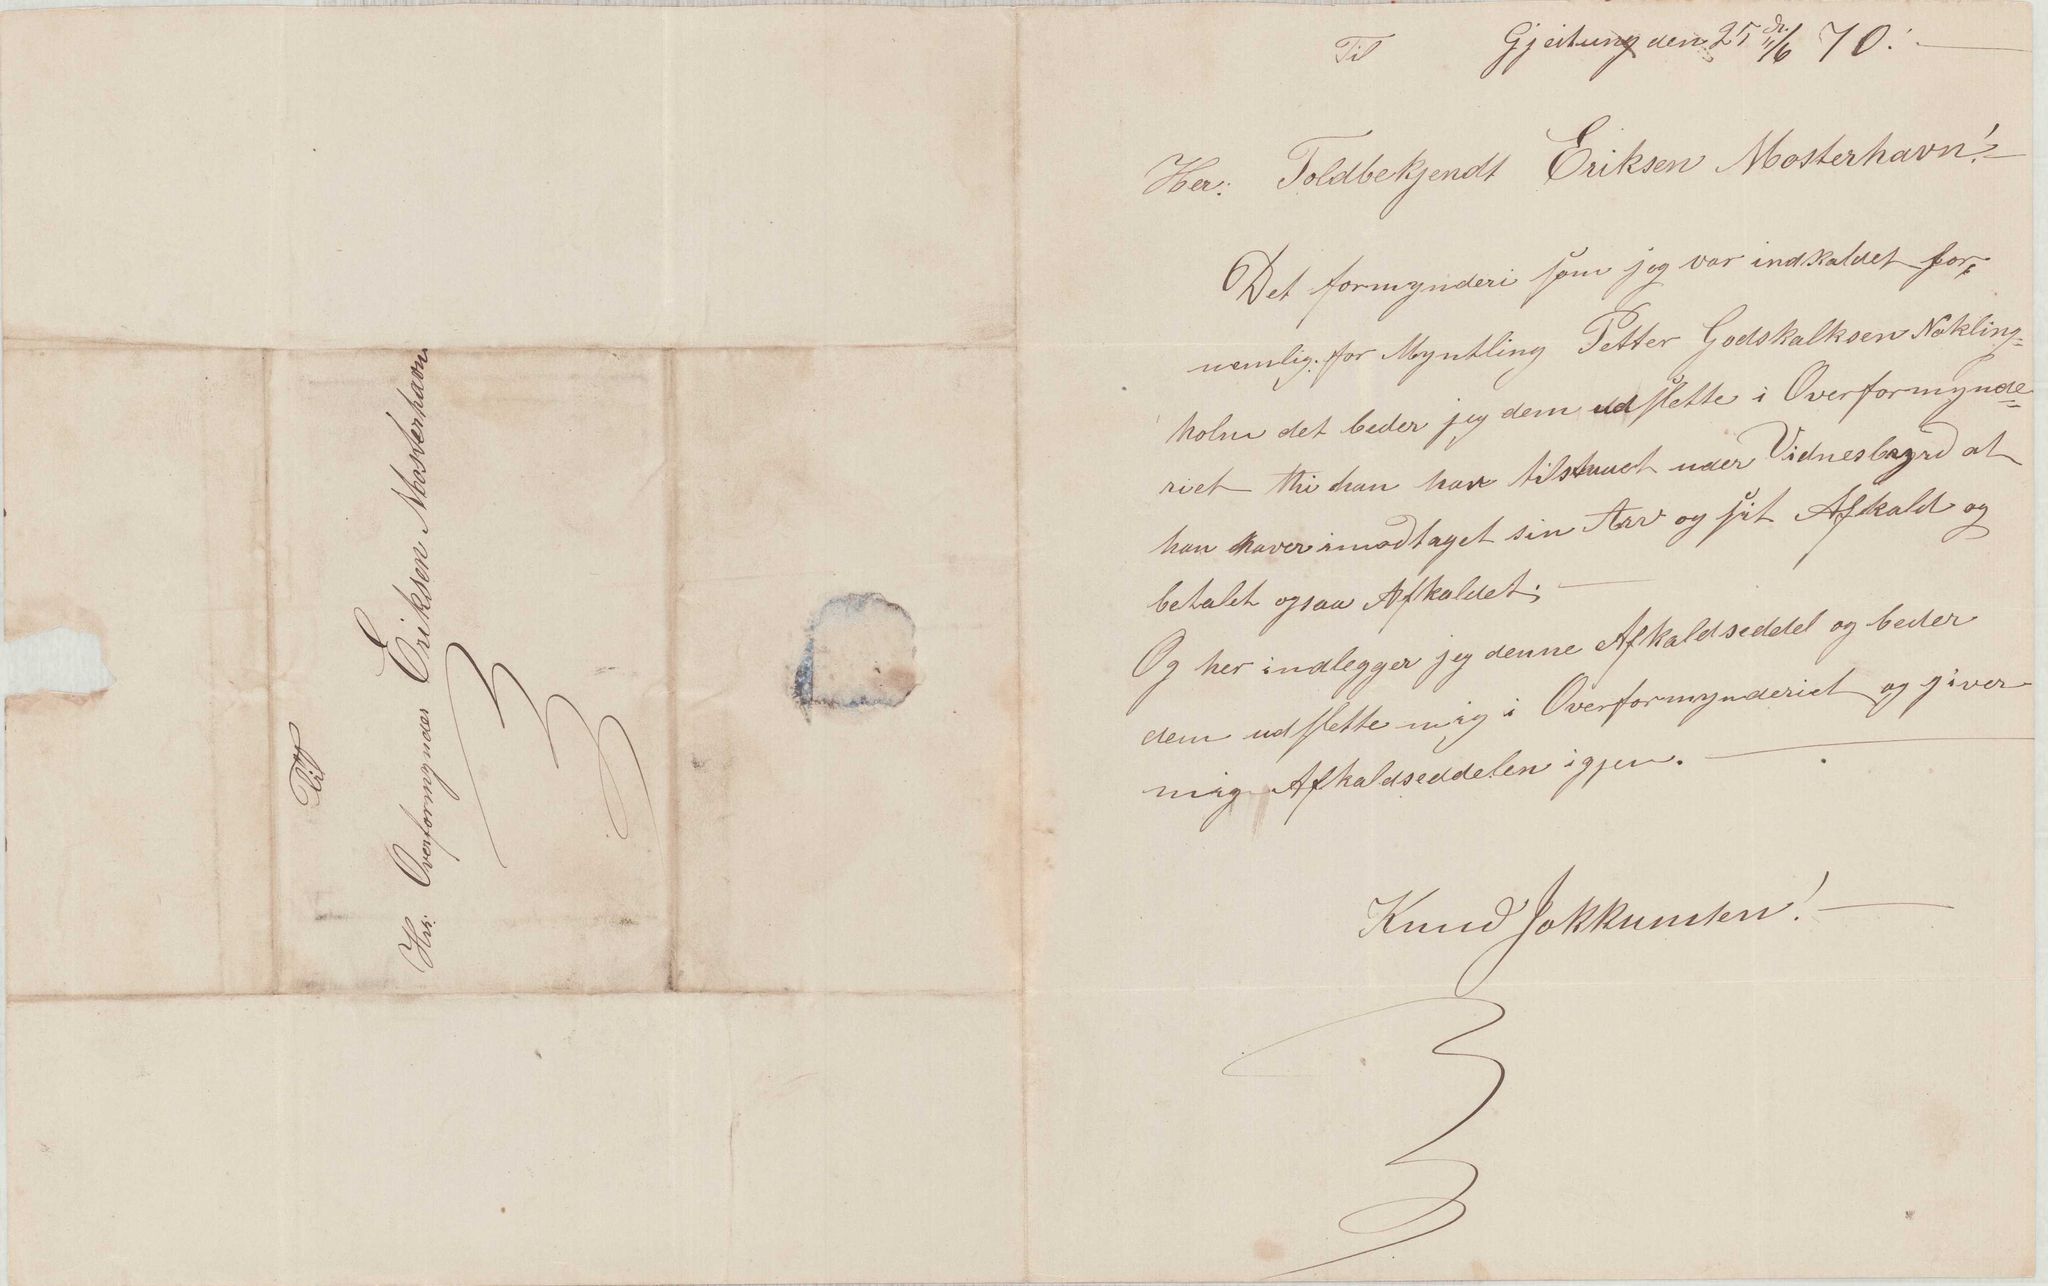 Til
Hr: Overformynder Eriksen Mosterhavn
Til Gjeitung den 25 /6 70.
Her: Toldbekjendt Eriksen Mosterhavn!
Det formynderi som jeg var indkaldet for,
nemlig: for Myntling Petter Godskalksen Nokling=
holm det beder jeg dem udslette i Overformynde=
riet thi han har tilstaaet under Vidnesbyrd at
han haver imodtaget sin Arv og sit Afkald og
betalt ogsaa Afkaldet;
Og her indlegger jeg denne Afkaldseddel og beder
dem udslette mig i Overformynderiet og giver
mig Afkaldseddelen igjen.
Knud Jokkumsen!